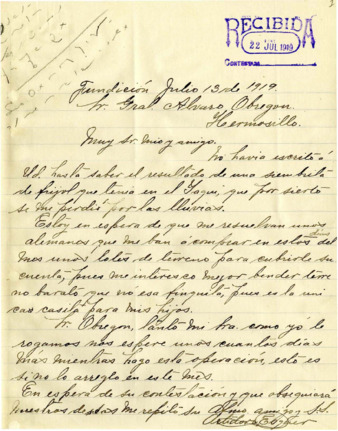 RECIBIDA
22 JUL 1919
CONTESTADA
Fundición Julio 13 de 1919.
Sr. Gral Alvaro Obregon.
Hermosillo.
Muy Sr. mio y amigo.
No havia escrito á
Ud. hasta saber el resultado de una siembrita
de frijol que tenia en el Yaqui, que por sierto
se me perdió por las lluvias.
Estoy en espera de que me resuelvan unos
alemanes que me ban a comprar en estos dias del
mes unos lotes de terreno para cubrirle su
cuenta, pues me interesa mejor bender terre
no barato que no esa finquita, pues es la uni
ca casita para mis hijos.
Sr. Obregon, tanto mi Sra. como yó le
rogamos nos espere unos cuantos dias
más mientras hago esta operación, esto es
si no lo arreglo en este mes.
En espera de su contestación y que obsequiará
nuestros deseos me repito su Afmo. amigo y S.S.